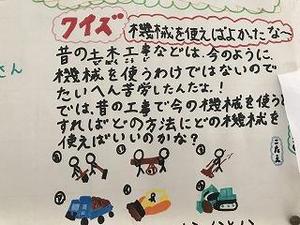 クイズ 機械を使えばよかったな〜
さん
昔の土木工事などは、今のように
機械を使うわけではないので
たいへん苦労したんだよ!
では、昔の工事で今の機械を使うと
すればどの方法にどの機械を
使えばいいのかな?